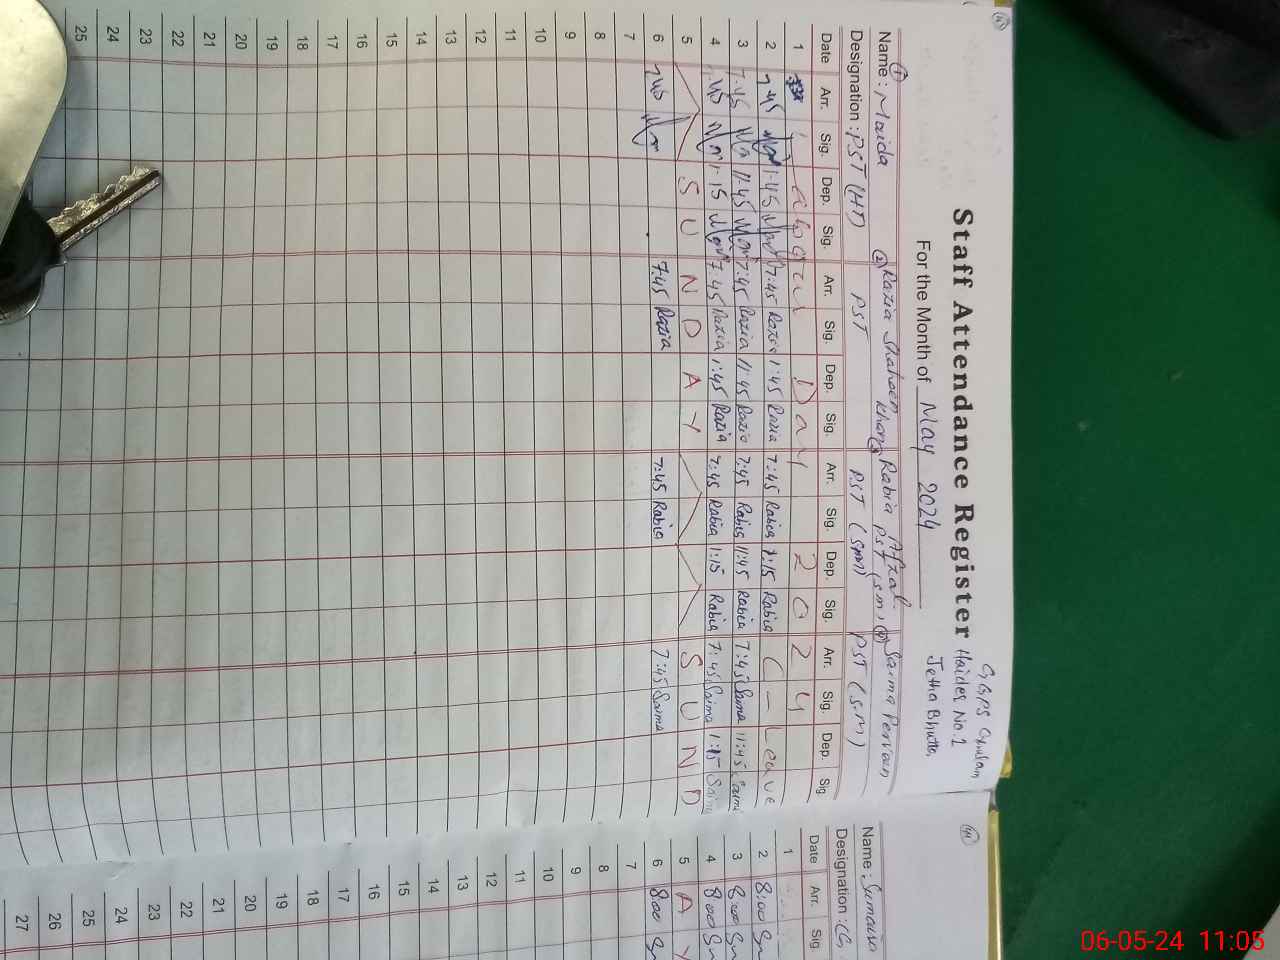 GGPS Ghulam
Haider No.1
Jetha Bhutta
Staff Attendance Register
For the Month of May 2024
Name: ① Maida ② Razia Shaheen Khan ③ Rabia Afzal ④ Saima Perveen
PST (SM)
Designation: PST (HT) PST PST (SM) PST (S.M)
Date Arr. Sig. Dep. Sig. Arr. Sig. Dep. Sig. Arr. Sig. Dep. Sig. Arr. Sig. Dep. Sig
1 Labour Day 2024
2 7:45 1:45 7:45 Razia 1:45 Razia 7:45 Rabia 1:15 Rabia C-Leave
3 7:45 11:45 7:45 Razia 11:45 Razia 7:45 Rabia 11:45 Rabia 7:45 Saima 11:45 Saima
4 7:45 1:15 7:45 Razia 1:45 Razia 7:45 Rabia 1:15 Rabia 7:45 Saima 1:15 Saima
5 SUNDAY SUND
6 7:45 7:45 Razia 7:45 Rabia 7:45 Saima
7
8
9
10
11
12
13
14
15
16
17
18
19
20
21
22
23
24
25
Name: Sumaira
Designation:
Date Arr. Sig
1
2 8:00
3 8:00
4 8:00
5 A Y
6 8:00
7
8
9
10
11
12
13
14
15
16
17
18
19
20
21
22
23
24
25
26
27
06-05-24 11:05